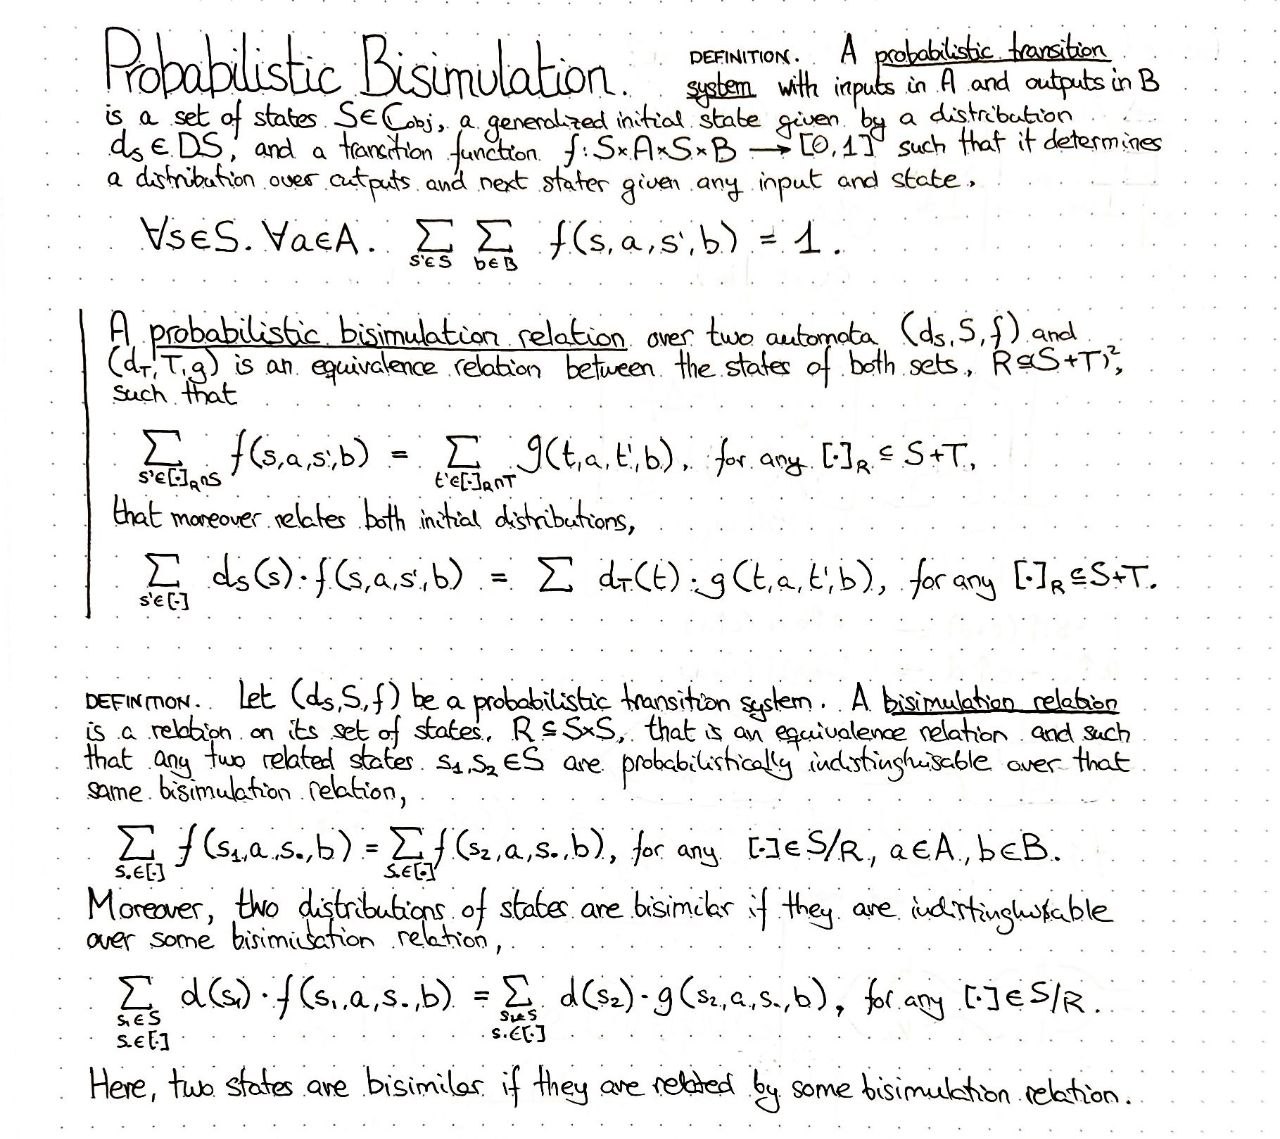 Probabilistic Bisimulation. DEFINITION. A probabilistic transition
system with inputs in A and outputs in B
is a set of states S∈Cobj, a generalized initial state given by a distribution
dₛ∈DS, and a transition function f:S×A×S×B → [0,1] such that it determines
a distribution over outputs and next stater given any input and state,
∀s∈S. ∀a∈A. ∑_{s'∈S} ∑_{b∈B} f(s,a,s',b) = 1.
A probabilistic bisimulation relation over two automata (dₛ,S,f) and
(d_T,T,g) is an equivalence relation between the states of both sets, R⊆(S+T)²,
such that
∑_{s'∈[·]_R∩S} f(s,a,s',b) = ∑_{t'∈[·]_R∩T} g(t,a,t',b), for any [·]_R ⊆ S+T,
that moreover relates both initial distributions,
∑_{s'∈[·]} dₛ(s)·f(s,a,s',b) = ∑ d_T(t)·g(t,a,t',b), for any [·]_R ⊆ S+T.
DEFINITION. Let (dₛ,S,f) be a probabilistic transition system. A bisimulation relation
is a relation on its set of states, R⊆S×S, that is an equivalence relation and such
that any two related states s₁,s₂∈S are probabilistically indistinghuisable over that
same bisimulation relation,
∑_{s.∈[·]} f(s₁,a,s.,b) = ∑_{s.∈[·]} f(s₂,a,s.,b), for any [·]∈S/R, a∈A, b∈B.
Moreover, two distributions of states are bisimilar if they are indistinghuisable
over some bisimulation relation,
∑_{s₁∈S s.∈[·]} d(s₁)·f(s₁,a,s.,b) = ∑_{s₂∈S s.∈[·]} d(s₂)·g(s₂,a,s.,b), for any [·]∈S/R.
Here, two states are bisimilar if they are related by some bisimulation relation.